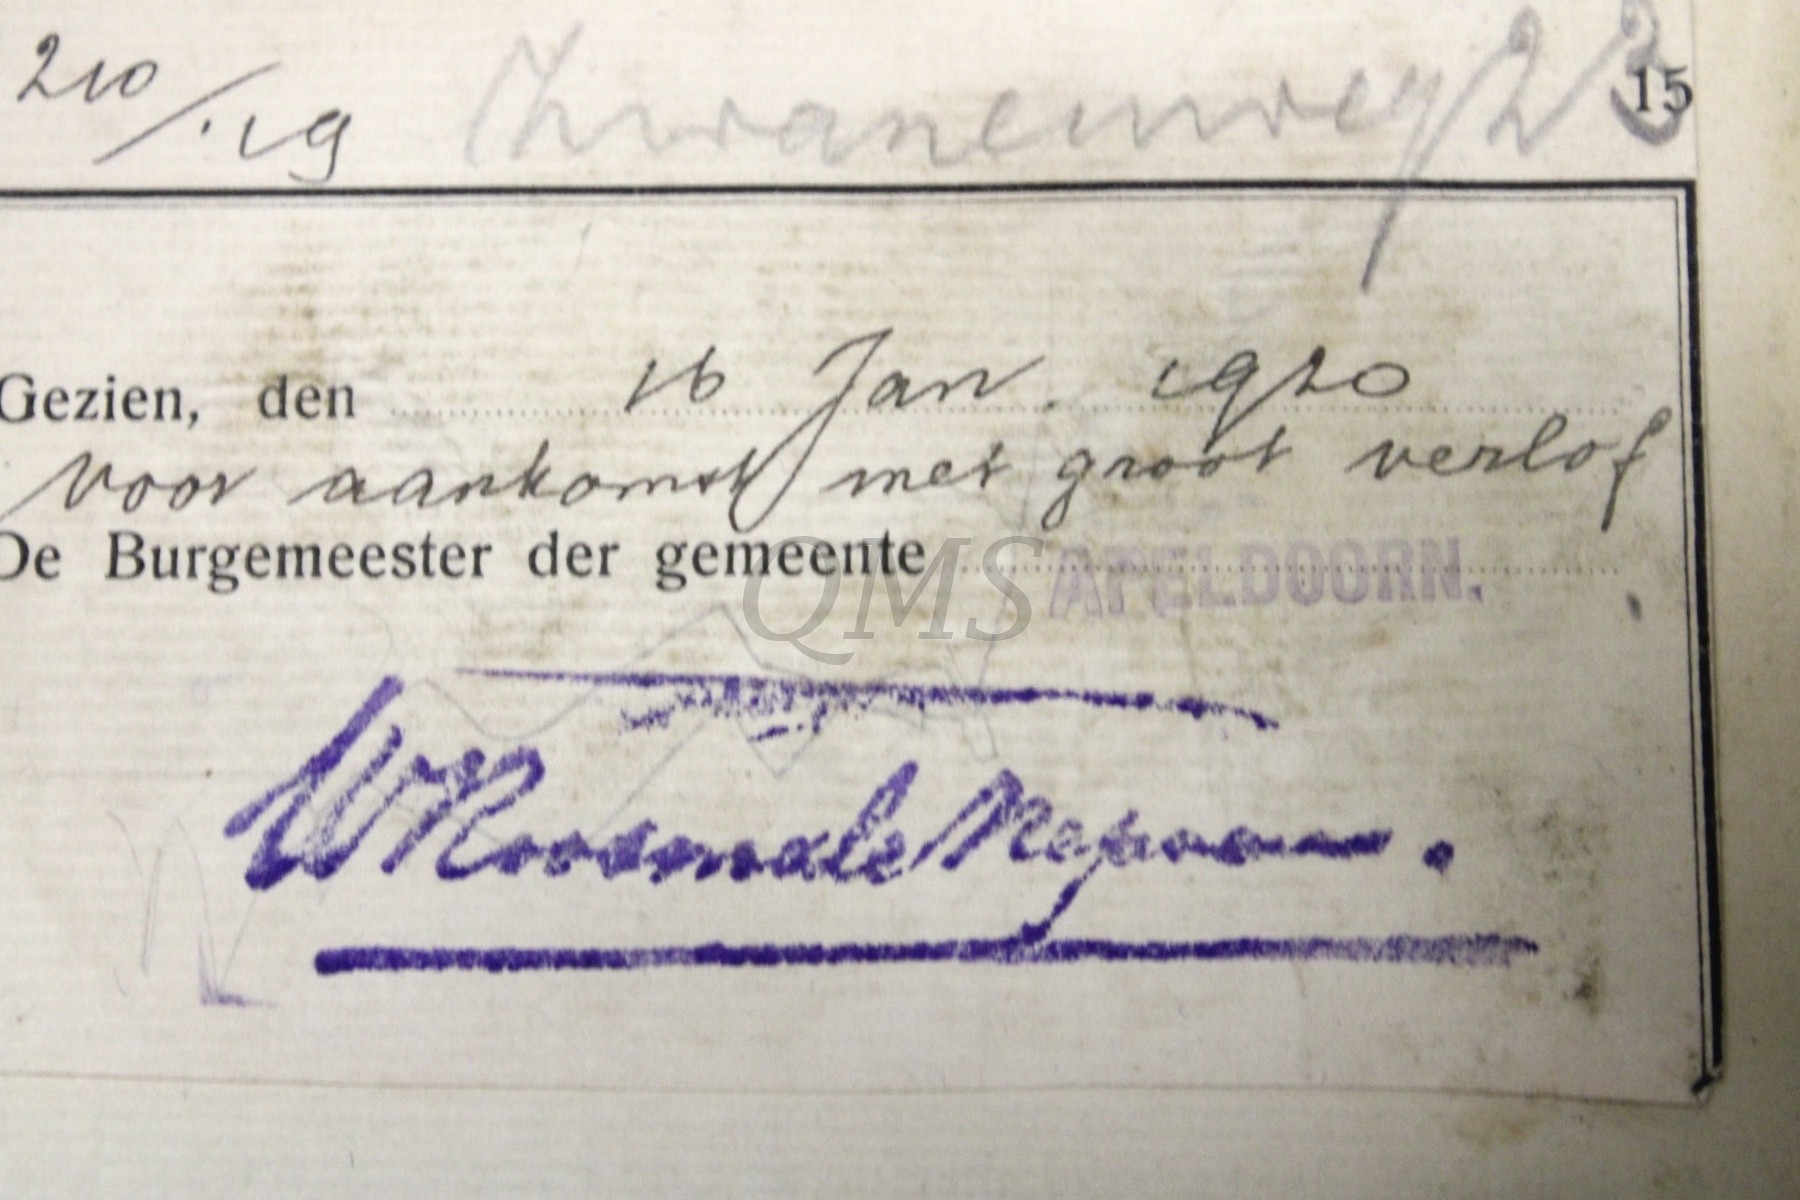 210/19 Zwanenweg 23 15
Gezien, den 16 Jan. 1920
voor aankomst met groot verlof
De Burgemeester der gemeente APELDOORN.
QMS
W Roosmale Nepveu.